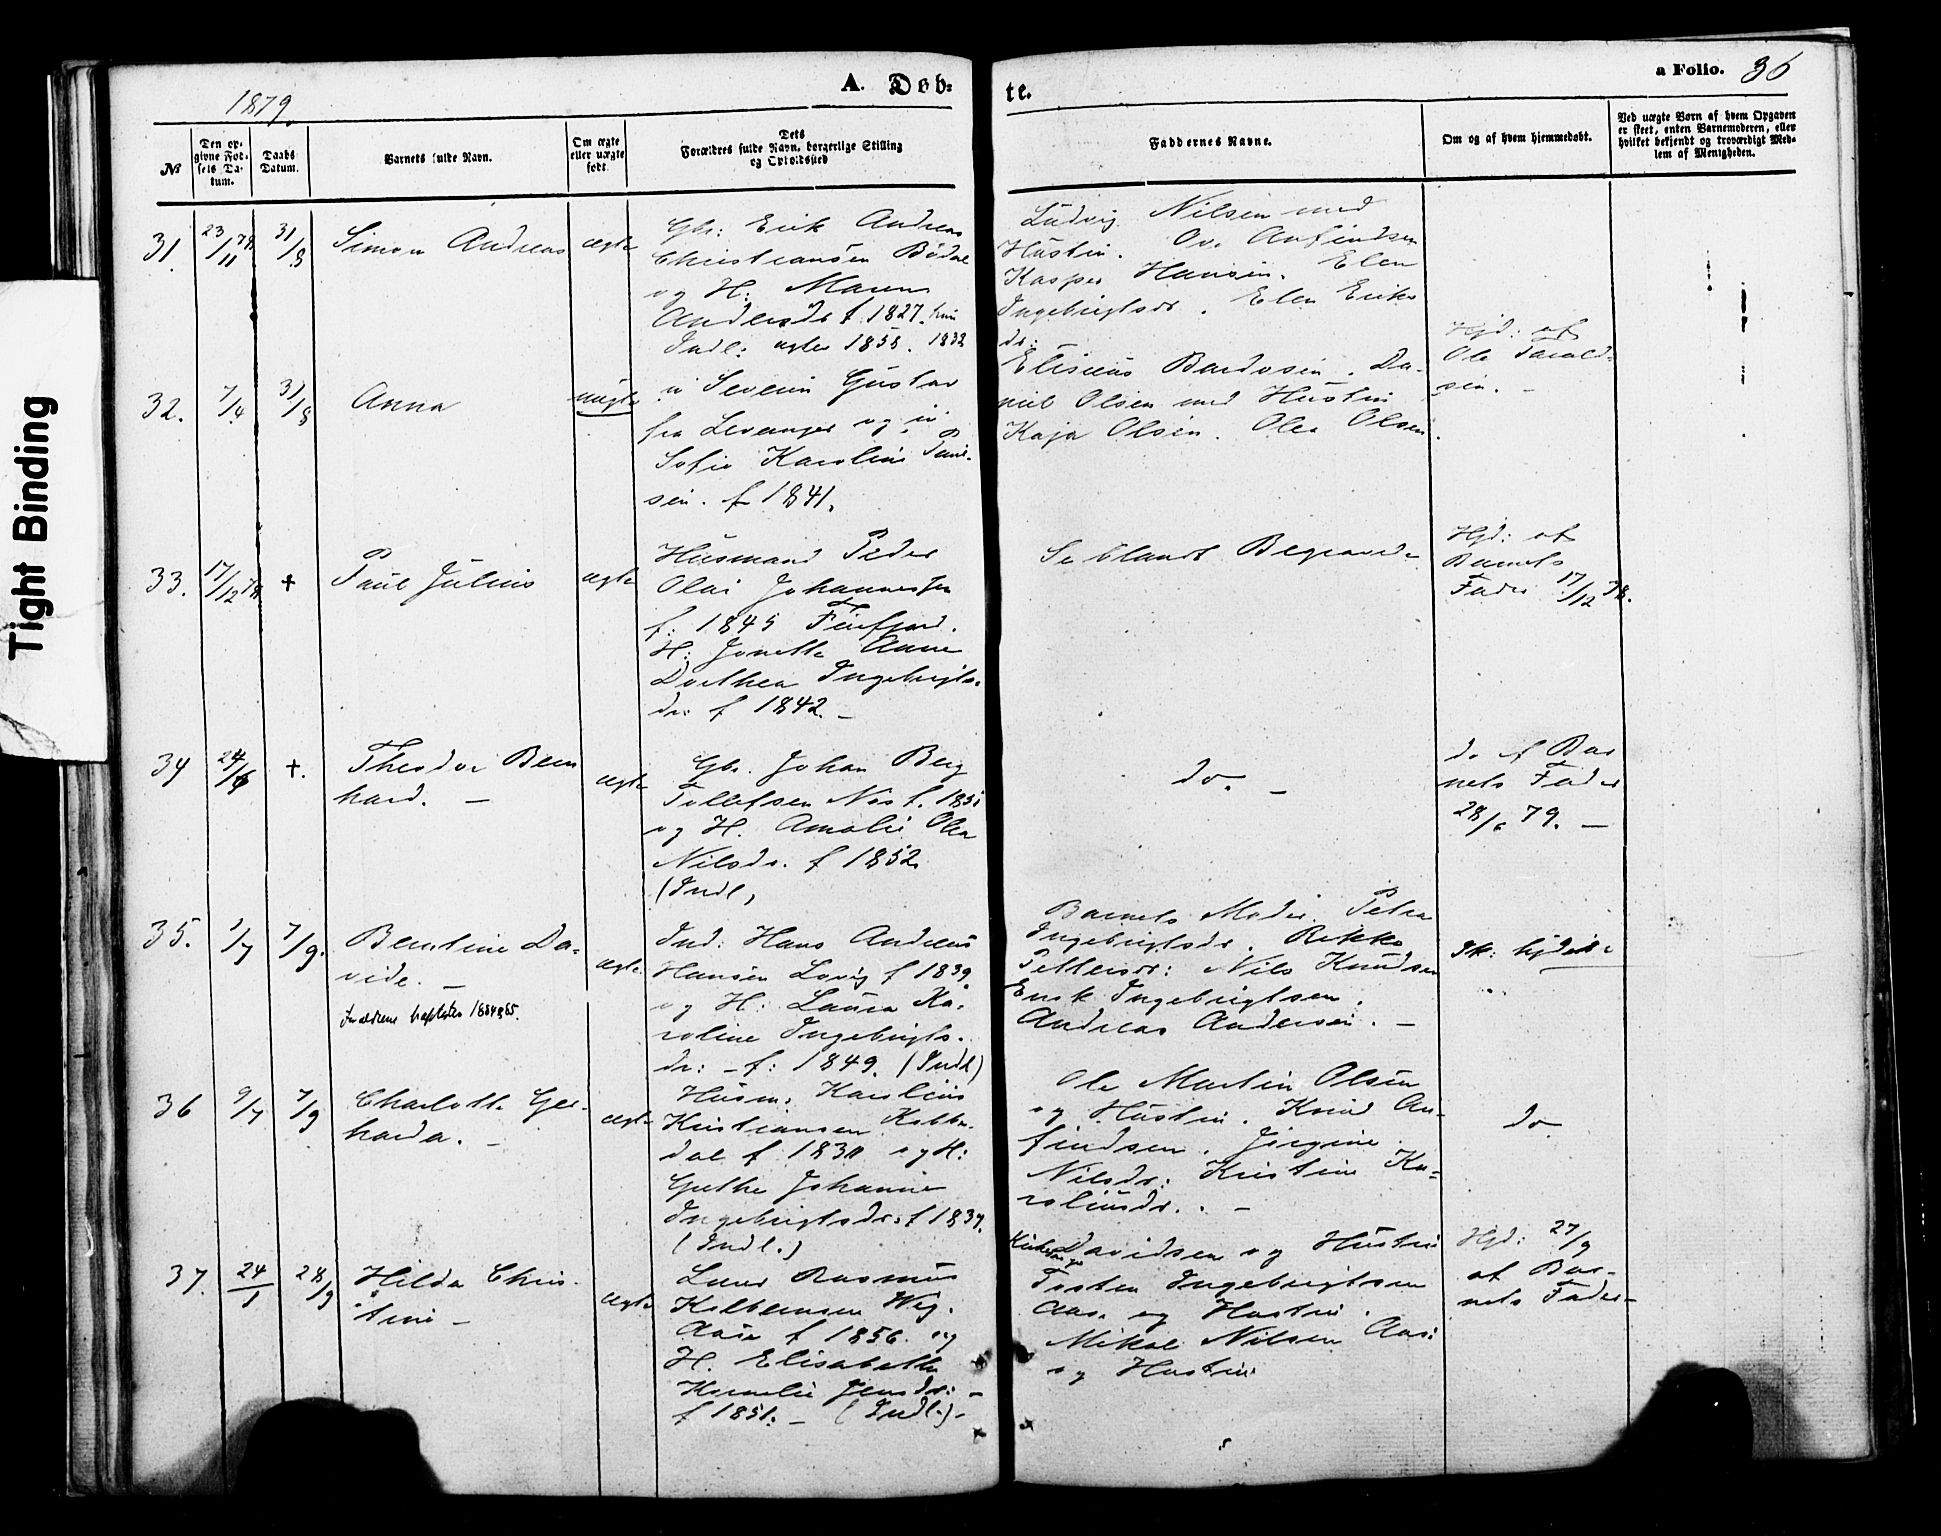 Tight Binding
1879.
A. Döb-
te.
a Folio. 36
No
Den op-
givne Fød-
sels Da-
tum.
Daabs
Datum.
Barnets fulde Navn.
Om ægte
eller uægte
født.
Dets
Forældres fulde Navn, borgerlige Stilling
og Opholdssted
Faddernes Navne.
Om og af hvem hjemmedøbt.
Ved uægte Børn af hvem Opgaven
er skeet, enten Barnemoderen, eller
hvilket bekjendt og troværdigt Med-
lem af Menigheden.
31.
23/11 78
31/8
Simon Andreas
ægte
Gbr: Erik Andreas
Christiansen Bødal
og H: Maren
Andersdr f. 1827. hun
Indl: ægtev 1858. 1832
Ludvig Nilsen med
Hustru. Ove Anfindsen
Kasper Hansen. Elen
Ingebrigtsdr. Elen Eriks
dr:
32.
7/4
31/8
Anna
uægte
Severin Gustav
fra Levanger og
Sofie Karoline
sen. f 1841.
Eliseus Bardosen. Da-
niel Olsen med Hustru
Kaja Olsen. Olea Olsen.
Hjd: af
Ole Tarald-
sen. -
33.
17/12 78
+
Paul Julius
ægte
Husmand Peder
Olai Johannessen
f: 1845 Finfjord.
H: Jonette Anne
Dorthea Ingebrigts-
dr: f 1842. -
Se blandt Begravede
Hjd: af
Barnets
Fader 17/12 78.
34
24/6
+.
Theodor Bern
hard. -
ægte
Gbr. Johan Berg
Tollefsen Næs f. 1851
og H. Amalie Olea
Nilsdr. f 1852
(Indl,
do. -
do af Bar
nets Fader
28/6 79. -
35.
1/7
7/9.
Bentine Da-
vide. -
Forældrene 1884 & 85.
ægte
Ind: Hans Andreas
Hansen Lovig f 1839.
og H: Laura Ka-
roline Ingebrigts.
dr: - f: 1849. (Indl)
Barnets Moder. Petra
Ingebrigtsdr. Rikka
Pettersdr: Nils Knudsen
Erik Ingebrigtsen.
Andreas Andersen. -
Ik: hjdøbt
36
9/7
7/9
Charlotte Ger-
harda. -
ægte
Husm: Karelius
Kristiansen Kobbe-
dal f 1830 og H:
Grethe Johanne
Ingebrigtsdr: f 1837.
(Indl.)
Ole Martin Olsen
og Hustru. Knud An-
findsen. Jørgine
Nilsdr: Kristine Ka-
roliusdr. -
do
37.
24/1
28/9
Hilda Chris-
tine -
ægte
Rasmus
Kolbensen
Aase f 1856. og
H. Elisabeth
Kornelie Jensdr: -
f 1851. - (Indl.) -
Davidsen og Hustru
Torsten Ingebrigtsen
Aas. og Hustru.
Mikal Nilsen Aas:
og Hustru
Hjd: 27/9
af Bar-
nets Fader -